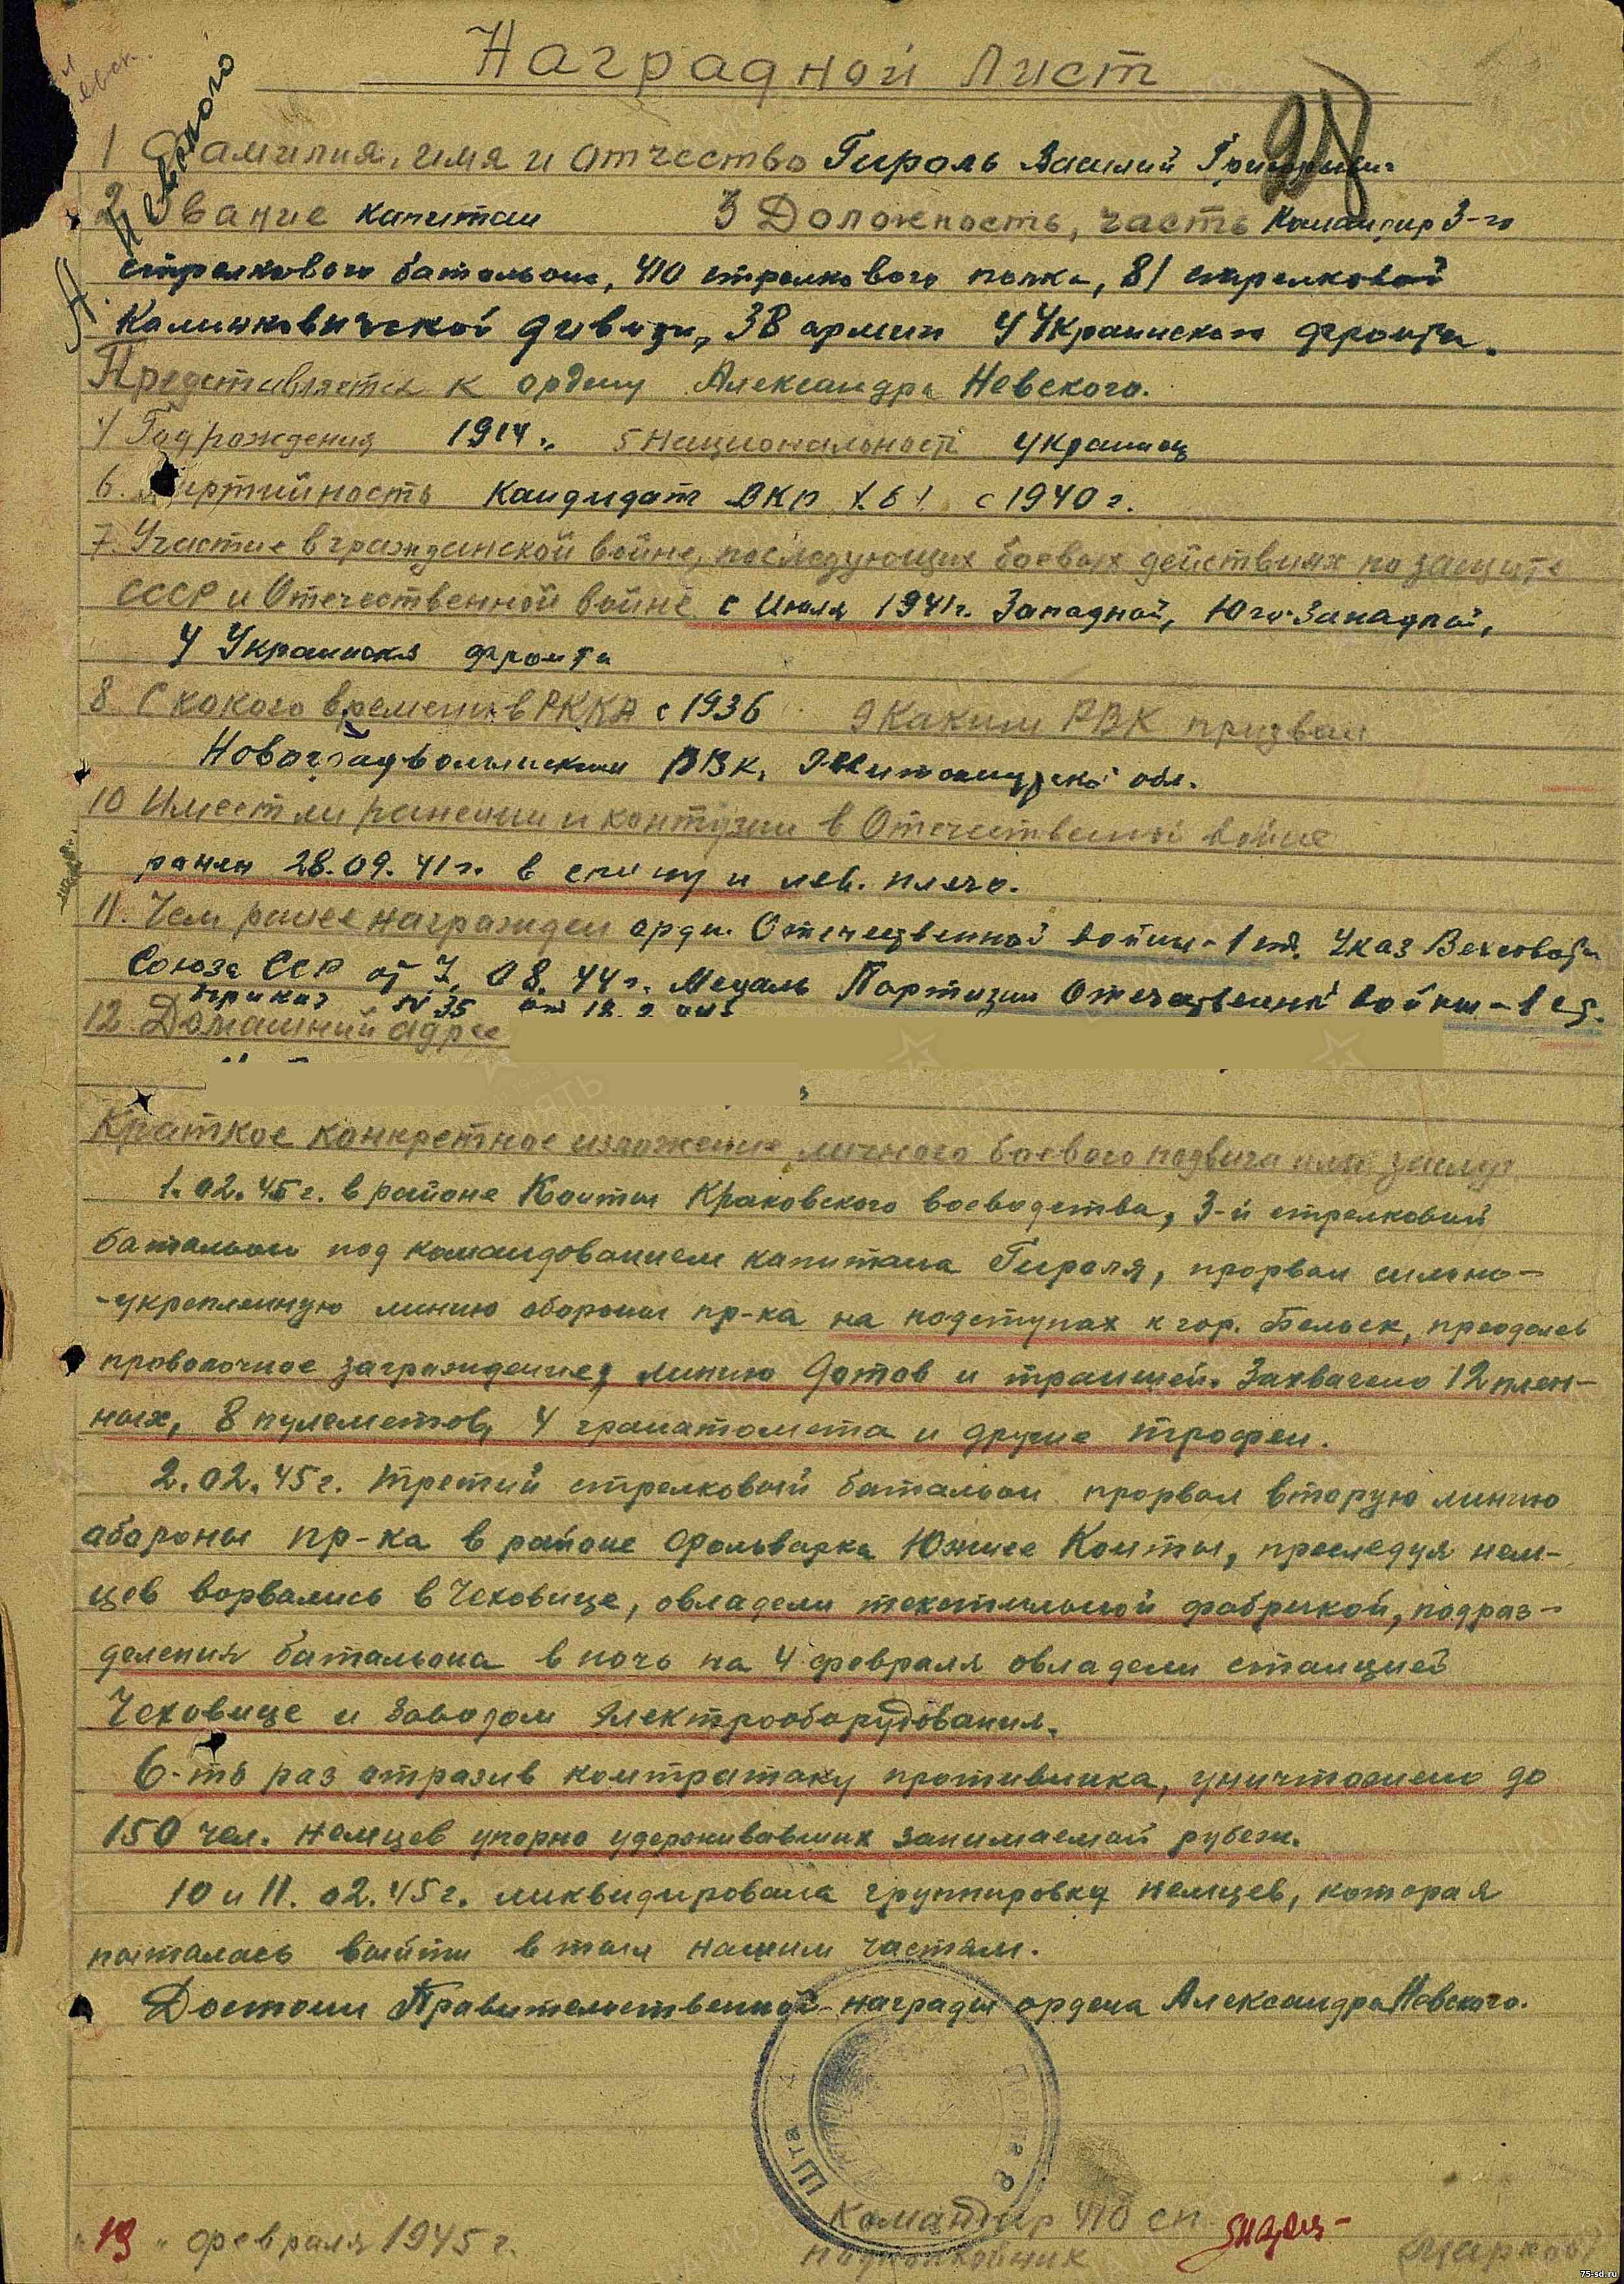 Наградной Лист
28
А. Невского
1 Фамилия, имя и отчество Гироль Василий Григорьевич
2 Звание капитан 3 Должность, часть Командир 3-го
стрелкового батальона, 410 стрелкового полка, 81 стрелковой
Калинковичской дивизии, 38 армии 4 Украинского фронта.
Представляется к ордену Александра Невского.
4 Год рождения 1914г. 5 Национальность украинец
6. Партийность Кандидат ВКП /б/ с 1940 г.
7. Участие в гражданской войне, последующих боевых действиях по защите
СССР и Отечественной войне с Июля 1941г. Западной, Юго-Западной,
4 Украинский фронта
8 С какого времени в РККА с 1936 9 Каким РВК призван
Новоградволынским РВК, Житомирской обл.
10 Имеет ли ранения и контузии в Отечественной войне
ранен 28.09.41г. в спину и лев. плечо.
11. Чем ранее награжден орден Отечественной войны-1 ст. Указ Верховов
Союза ССР от 7.08.44г. Медаль Партизан Отечественной войны-1 ст.
приказ № 35 от 18.2.
12. Домашний адрес
Краткое конкретное изложение личного боевого подвига или заслуг
1.02.45г. в районе Конты Краковского воеводства, 3-й стрелковый
батальон под командованием капитана Гироля, прорвал сильно-
-укрепленную линию обороны пр-ка на подступах к гор. Бельск, преодолев
проволочное заграждение, линию Дотов и траншей. Захвачено 12 плен-
ных, 8 пулеметов, 4 гранатомета и другие трофеи.
2.02.45г. третий стрелковый батальон прорвал вторую линию
обороны пр-ка в районе Фольварка Южнее Конты, преследуя нем-
цев ворвались в Чеховице, овладели текстильной фабрикой, подраз-
деления батальона в ночь на 4 февраля овладели станцией
Чеховице и Заводом Электрооборудования.
6-ть раз отразив контратаку противника, уничтожено до
150 чел. немцев упорно удерживавших занимаемый рубеж.
10 и 11.02.45г. ликвидировала группировку немцев, которая
пыталась выйти в тыл нашим частям.
Достоин Правительственной награды ордена Александра Невского.
"13" февраля 1945 г.
Командир 410 сп
подполковник
75-sd.ru